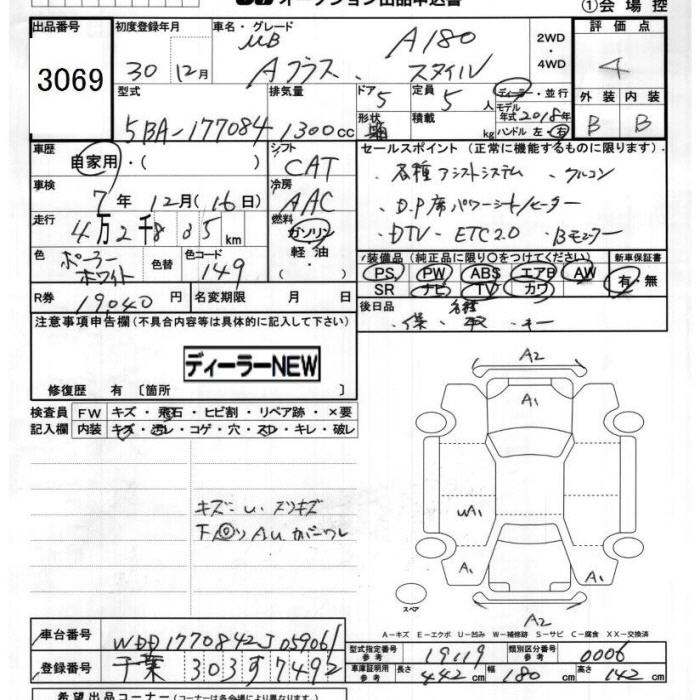 オークション出品申込書
①会場控
出品番号 3069
初度登録年月 30 12月
車名・グレード MB A180
Aプラス、スタイル
2WD・4WD
評価点 4
型式 5BA-177084
排気量 1300cc
ドア 5
定員 5人
形状
積載 kg
ディーラー・並行
モデル年式 2018年
ハンドル 左・右
外装 B
内装 B
車歴 自家用・( )
シフト CAT
車検 7年12月(16日)
冷房 AAC
走行 4万2千835km
燃料 ガソリン 軽油・( )
色 ポーラーホワイト
色替
色コード 149
R券 19,040円
名変期限 月 日
セールスポイント(正常に機能するものに限ります)
・各種アシストシステム ・クルコン
・D.P席パワーシート/ヒーター
・DTV ・ETC2.0 ・Bモニター
装備品(純正品に限り○をつけてください)
PS PW ABS エアB AW
SR ナビ TV カワ
新車保証書 有・無
後日品 ・保 ・取 ・キー
注意事項申告欄(不具合内容等は具体的に記入して下さい)
ディーラーNEW
修復歴 有〔箇所 〕
検査員記入欄
FW キズ・飛石・ヒビ割・リペア跡・×要
内装 キズ・汚レ・コゲ・穴・スレ・キレ・破レ
キズ=U.スリキズ
A2
A1
UA1
A1
A1
A2
スペア
A-キズ E-エクボ U-凹み W-補修跡 S-サビ C-腐食 XX-交換済
車台番号 WDD1770842J059061
登録番号 千葉 303 す 7492
型式指定番号 参考 19119
類別区分番号 参考 0006
車庫証明用 参考 長さ 442cm 幅 180cm 高さ 142cm
希望出品コーナー(コーナーは各会場により異なります)